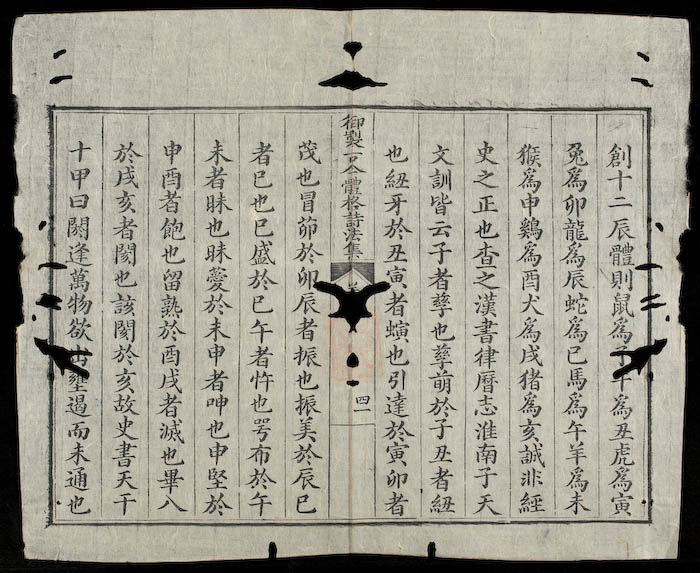 創十二辰體則鼠爲子牛爲丑虎爲寅
兔爲卯龍爲辰蛇爲巳馬爲午羊爲未
猴爲申鷄爲酉犬爲戌猪爲亥誠非經
史之正也查之漢書律曆志淮南子天
文訓皆云子者孳也孳萌於子丑者紐
也紐牙於丑寅者螾也引達於寅卯者
御製古今體格詩法集
四一
茂也冒茆於卯辰者振也振美於辰巳
者巳也巳盛於巳午者忤也咢布於午
未者昧也昧薆於未申者呻也申堅於
申酉者飽也留熟於酉戌者滅也畢入
於戌亥者閡也該閡於亥故史書天干
十甲曰閼逢萬物欲出壅遏而未通也